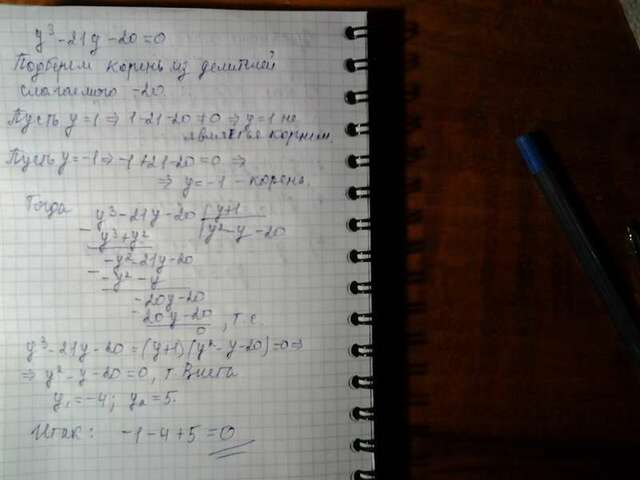 y³ - 21y - 20 = 0
Подберем корень из делителей
слагаемого -20.
Пусть y = 1 ⇒ 1 - 21 - 20 ≠ 0 ⇒ y = 1 не
является корнем.
Пусть y = -1 ⇒ -1 + 21 - 20 = 0 ⇒
⇒ y = -1 - корень.
Тогда
y³ - 21y - 20 | y+1
- y³ + y² | y² - y - 20
-y² - 21y - 20
- -y² - y
-20y - 20
- -20y - 20
0 , т.е.
y³ - 21y - 20 = (y+1)(y² - y - 20) = 0 ⇒
⇒ y² - y - 20 = 0, т. Виета
y₁ = -4; y₂ = 5.
Итак: -1 - 4 + 5 = 0